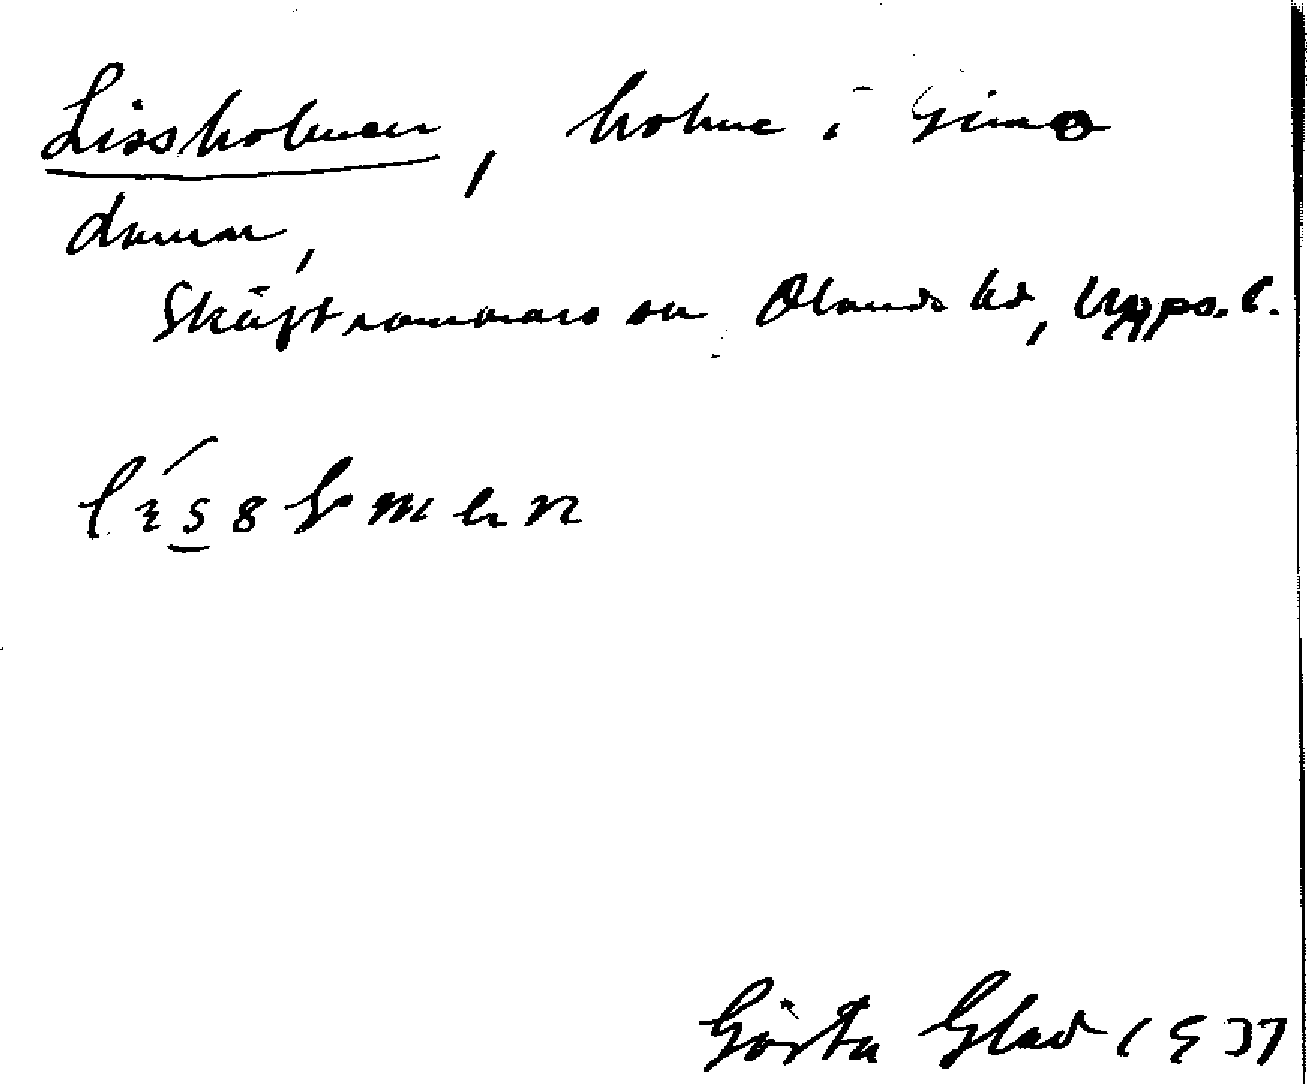 Lissholmen, holme i Gimo
damm,
Skäfthammars sn Olands hd, Upps. l.
Gösta Glad 1937